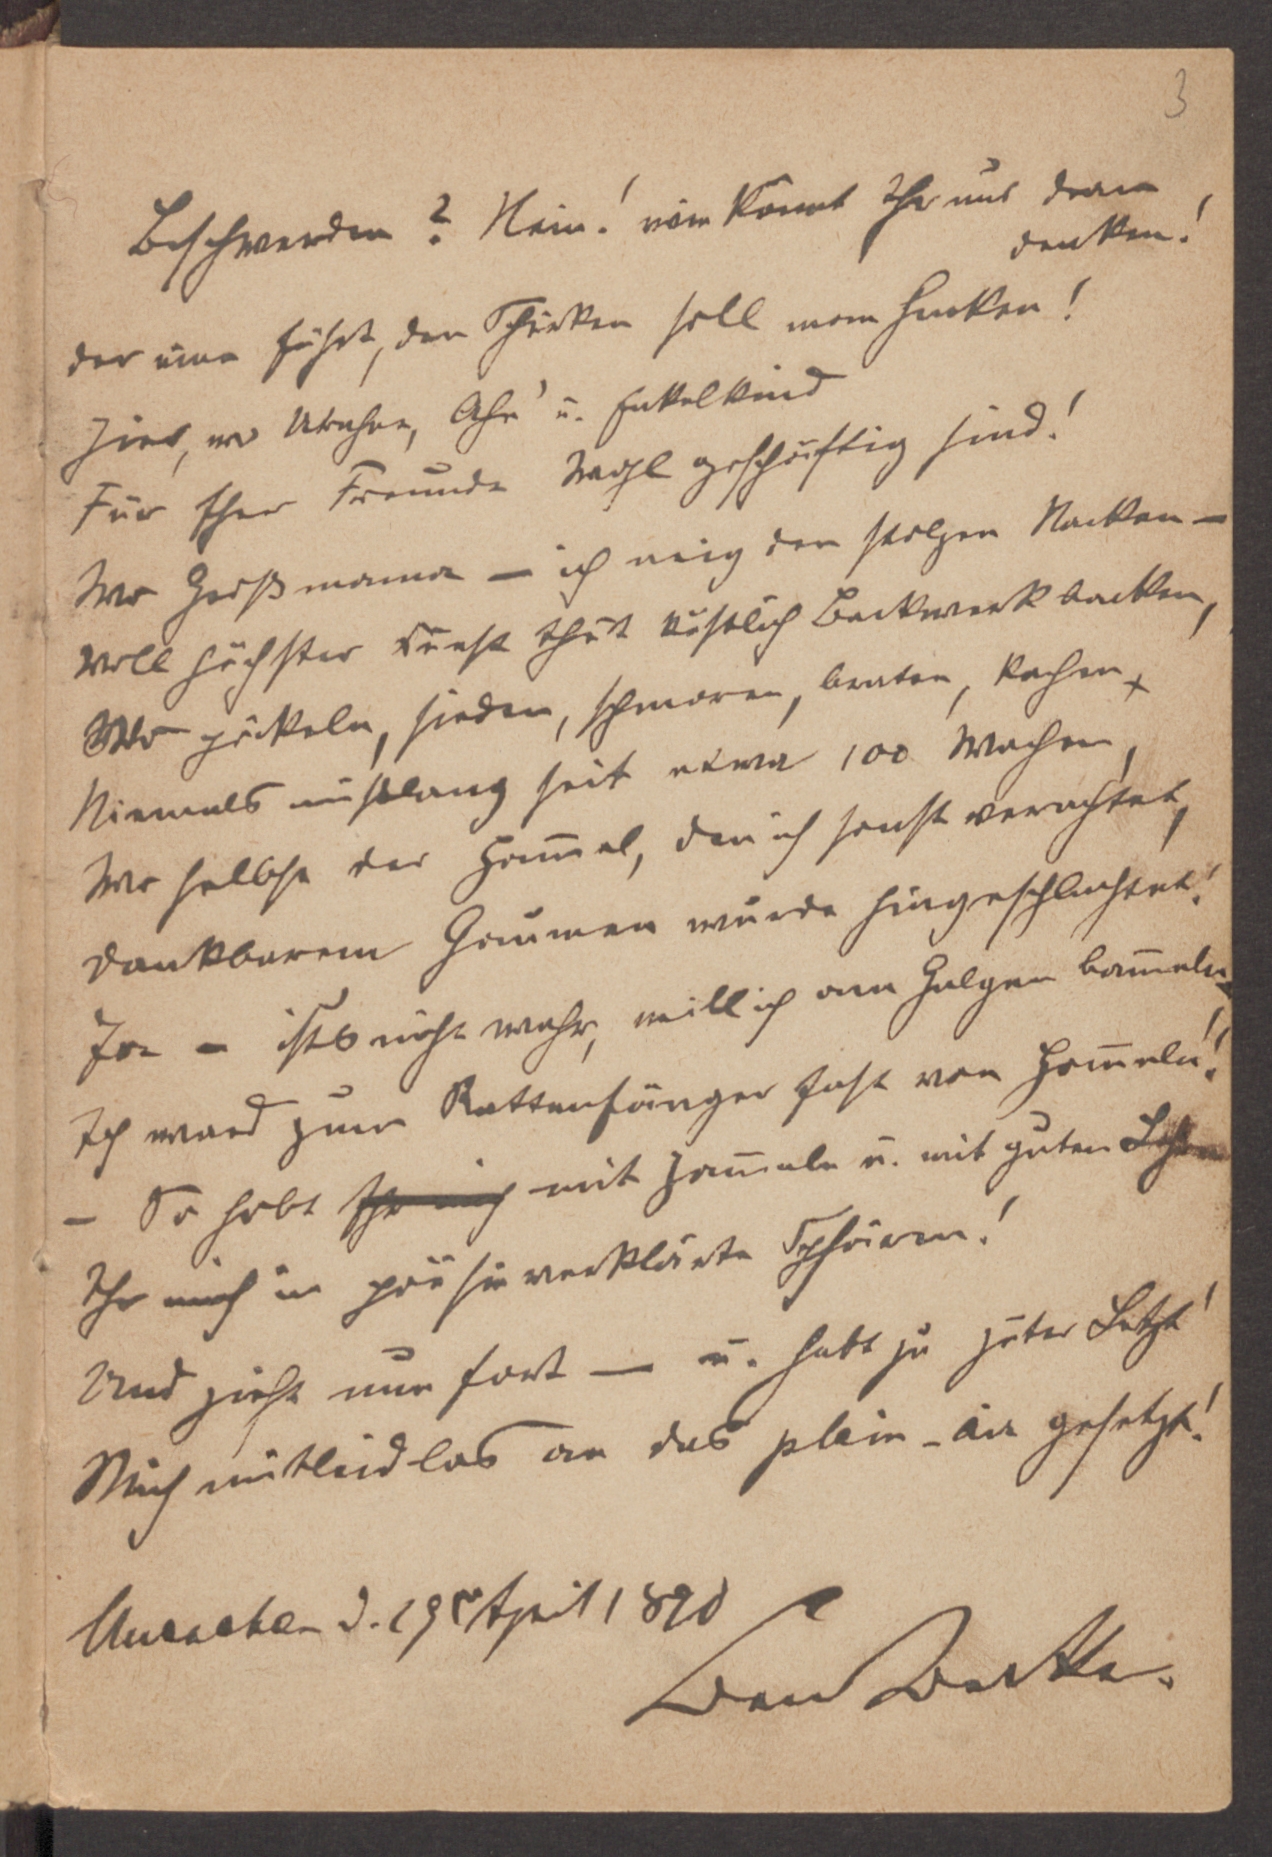 3
Beschwerden? Nein! wie könnt Ihr nur dran
denken!
der eine führt, den Schinken soll man henken!
Hier, wo Urahne, Ahn' u. Enkelkind
Für ihre Freunde Wohl geschäftig sind!
Wo Großmama – ich neig den stolzen Nacken –
Voll höchster Kunst thut köstlich Backwerk backen,
Wo pöckeln, sieden, schmoren, braten, kochen,
Niemals mißlang seit etwa 100 Wochen,
Wo selbst der Ham̅el, den ich sonst verachtet,
dankbarem Gaumen wurde hingeschlachtet!
Ja – ists nicht wahr, will ich am Galgen bam̅eln,
Ich ward zum Rattenfänger fast von Ham̅eln!
– So habt Ihr mich mit Ham̅eln u. mit guten
Ihr mich in poësieverklärte Sphären!
Und zieht nun fort – u. habt zu guter Letzt
Mich mitleidlos an das plein-air gesetzt!
Muenchen d. 19 April 1890